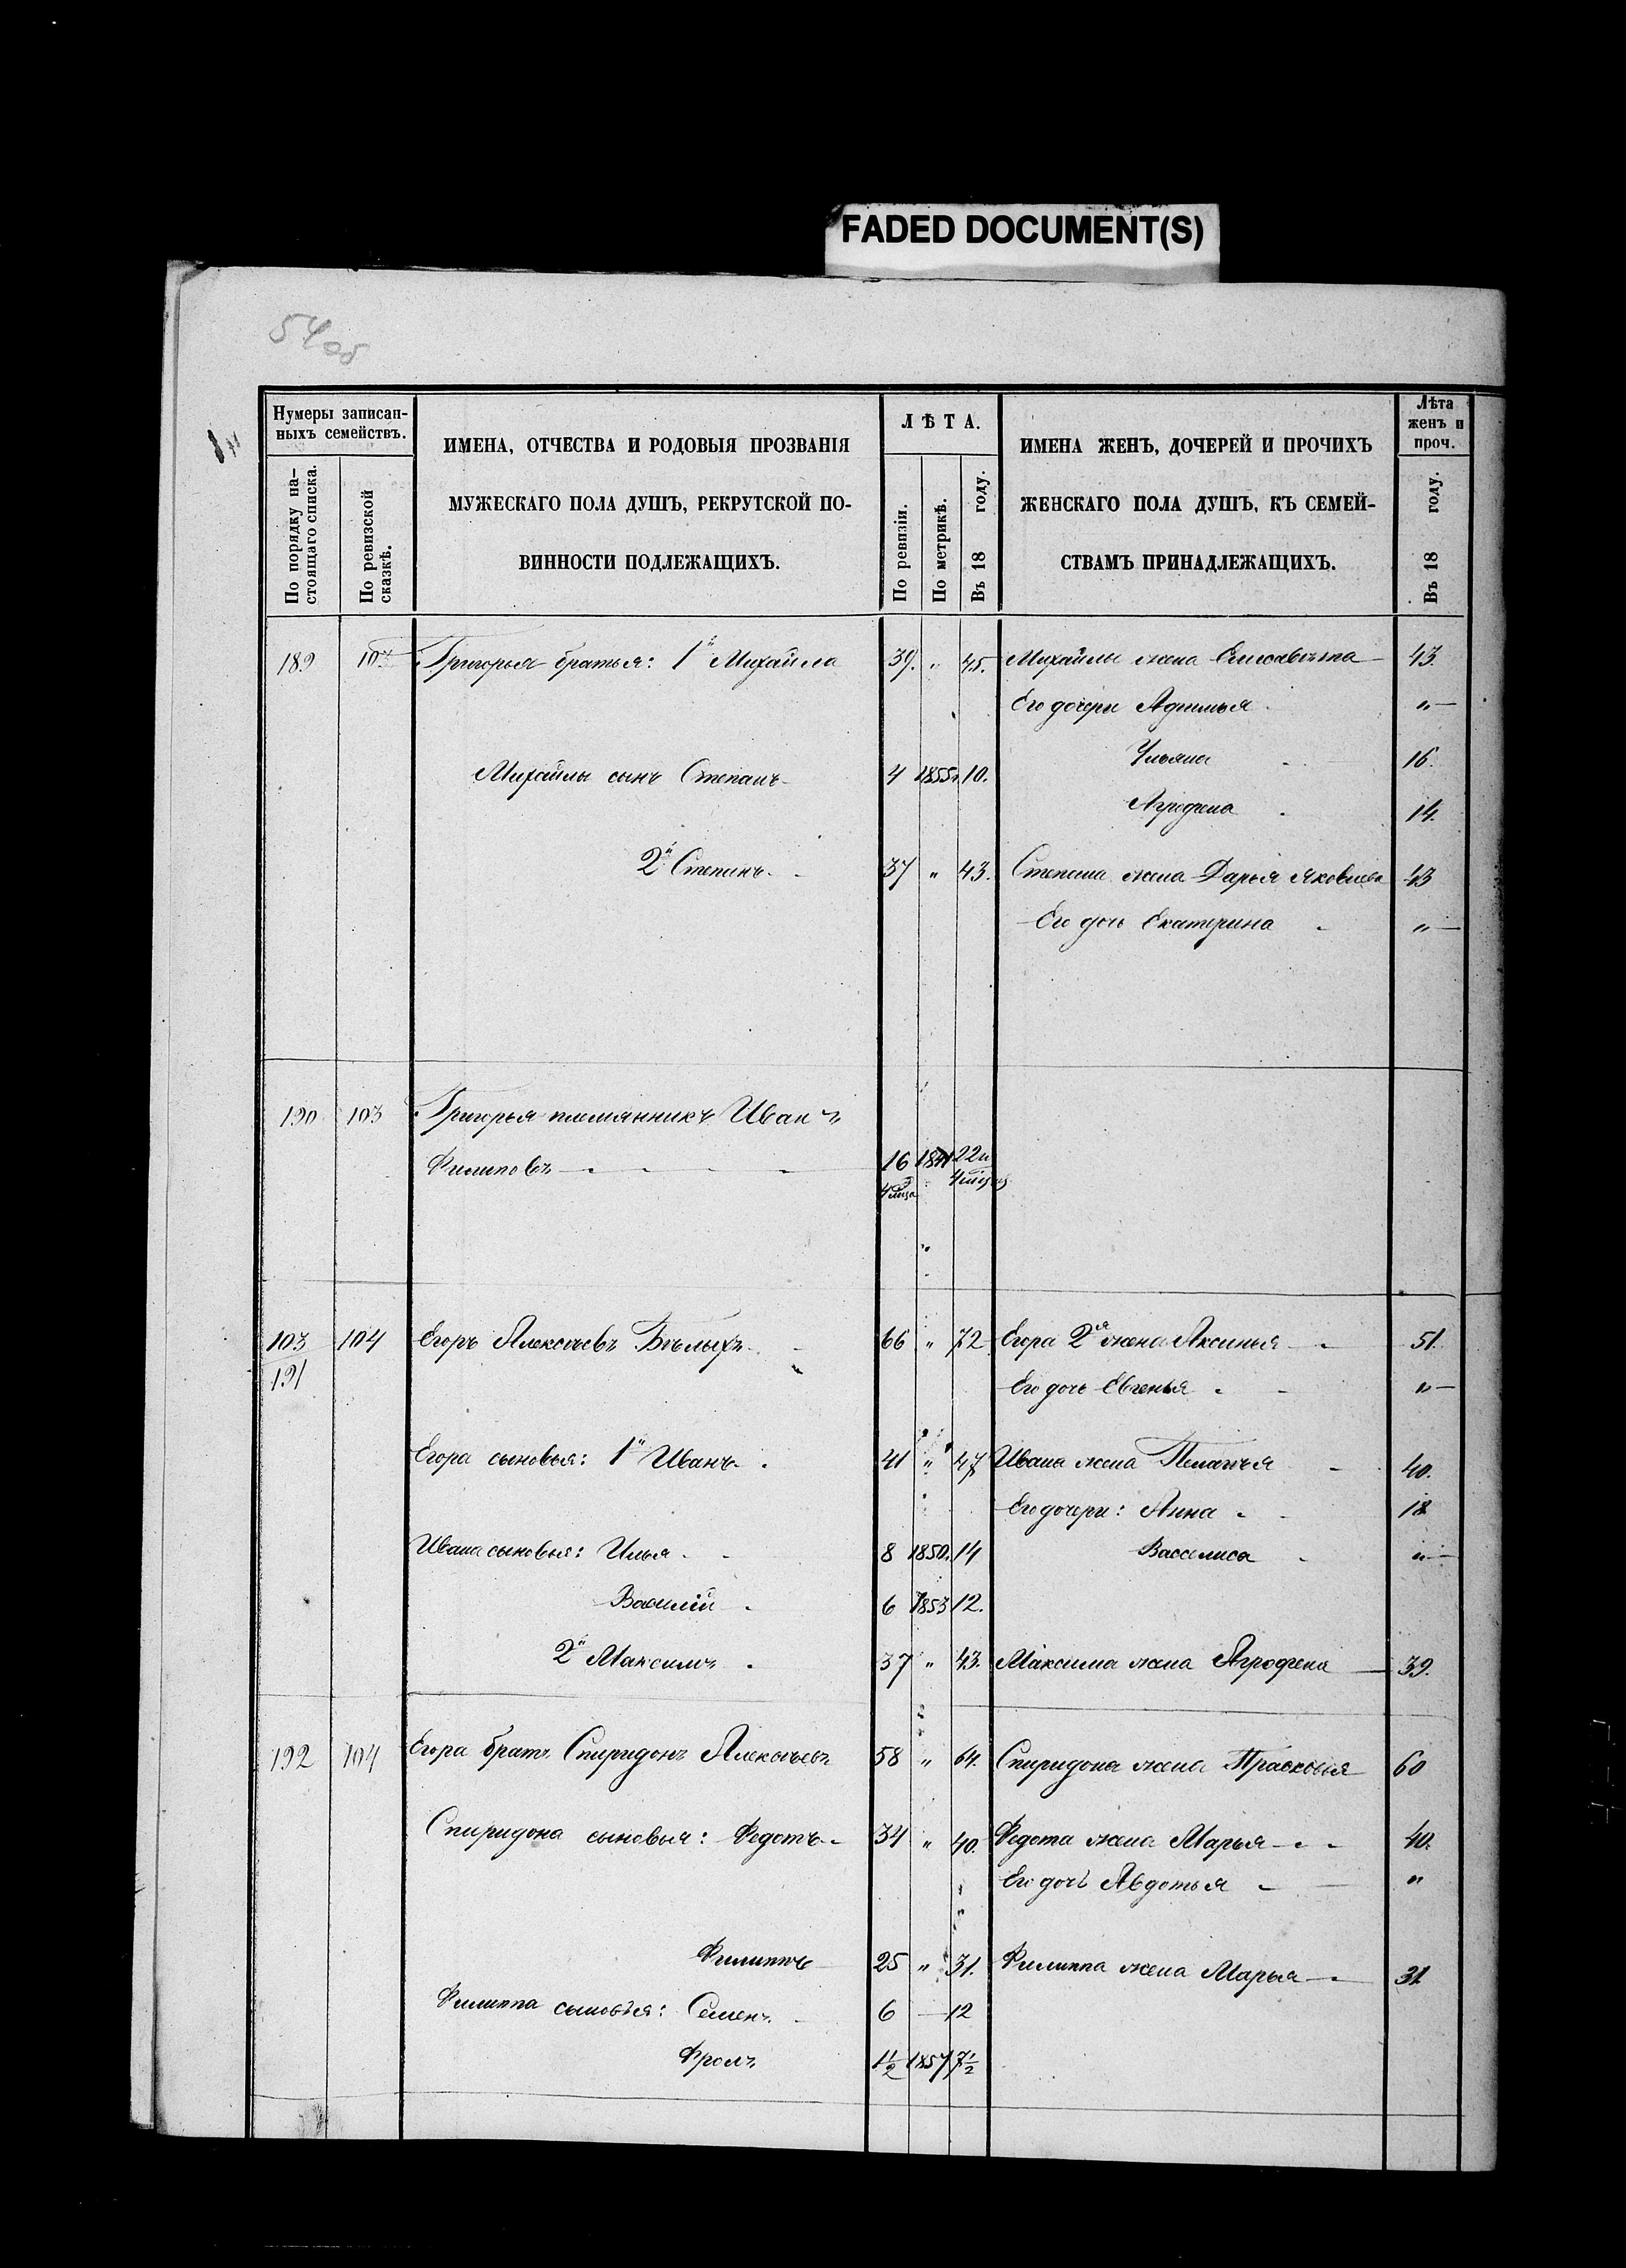 FADED DOCUMENT(S)
54об
Нумеры записан-
ныхъ семействъ.
По порядку на-
стоящаго списка.
По ревизской
сказкѣ.
ИМЕНА, ОТЧЕСТВА И РОДОВЫЯ ПРОЗВАНІЯ
МУЖЕСКАГО ПОЛА ДУШЪ, РЕКРУТСКОЙ ПО-
ВИННОСТИ ПОДЛЕЖАЩИХЪ.
ЛѢТА.
По ревизіи.
По метрикѣ.
Въ 18 году.
ИМЕНА ЖЕНЪ, ДОЧЕРЕЙ И ПРОЧИХЪ
ЖЕНСКАГО ПОЛА ДУШЪ, КЪ СЕМЕЙ-
СТВАМЪ ПРИНАДЛЕЖАЩИХЪ.
Лѣта
женъ и
проч.
Въ 18 году.
189 103 Григорья братья: 1й Михайла 39. " 45. Михайлы жена Елисавѣта 43.
Его дочери Афимья "
Ульяна 16.
Михайлы сынъ Степанъ 4 1855 10.
Агрофена 14.
2й Степанъ 37 " 43. Степана жена Дарья Яковлева 43
Его дочь Екатерина "
190 103 Григорья племянникъ Иванъ
Филиповъ 16 1841 22 и
4 мѣся 4 мѣсяц
103 104 Егоръ Алексѣевъ Бѣлыхъ 66 " 72 Егора 2я жена Аксинья 51.
191 Его дочь Евгенья "
Егора сыновья: 1й Иванъ 41 " 47 Ивана жена Пелагѣя 40.
Его дочери: Анна 18
Ивана сыновья: Илья 8 1850. 14 Васелиса "
Василій 6 1853 12.
2й Максимъ 37 " 43. Максима жена Агрофена 39.
192 104 Егора братъ Спиридонъ Алексѣевъ 58 " 64. Спиридона жена Прасковья 60
Спиридона сыновья: Федотъ 34 " 40. Федота жена Марья 40.
Его дочь Авдотья "
Филиппъ 25 " 31. Филиппа жена Марья 31
Филиппа сыновья: Семенъ 6 — 12
Фролъ 1½ 1857 7½